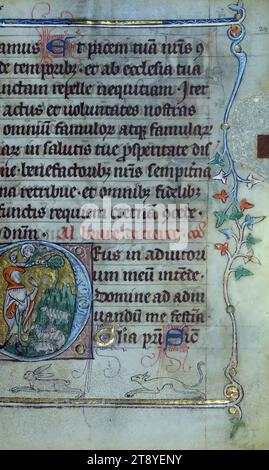 amus Et pacem tuā nr̄is o
de temporibꝫ et ab ecclesia tua
cunctam repelle nequitiam Iter
actus et uoluntates nostras
omniū famulor atqꝫ famular
in salutis tue prosperitate dis
benefactoribꝫ nr̄is sempitna
na retribue et omnibꝫ fidelibꝫ
functis requiem
dnm̄
eus in adiutor
um meū intende
Domine ad adiu
uandū me festina
Gl̄ia pr̄i Sic̄
alamy
Image ID: 2T8YEYN
www.alamy.com